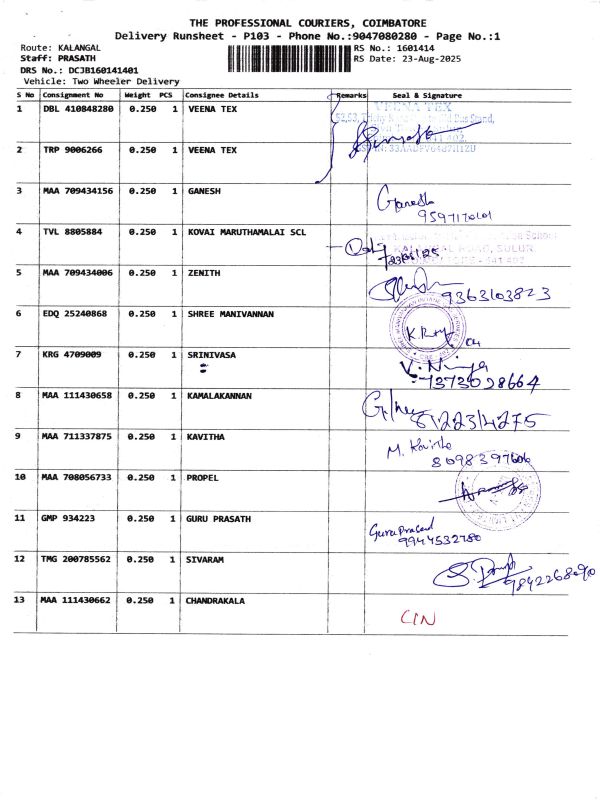 THE PROFESSIONAL COURIERS, COIMBATORE
Delivery Runsheet - P103 - Phone No.:9047080280 - Page No.:1
Route: KALANGAL RS No.: 1601414
Staff: PRASATH RS Date: 23-Aug-2025
DRS No.: DCJB160141401
Vehicle: Two Wheeler Delivery
S No Consignment No Weight PCS Consignee Details Remarks Seal & Signature
1 DBL 410848280 0.250 1 VEENA TEX VEENA TEX
2 TRP 9066266 0.250 1 VEENA TEX
3 MAA 709434156 0.250 1 GANESH Ganesh
9597170101
4 TVL 8805884 0.250 1 KOVAI MARUTHAMALAI SCL
KALANGAL ROAD, SULUR
5 MAA 709434006 0.250 1 ZENITH
9363103823
6 EDQ 25240868 0.250 1 SHREE MANIVANNAN
7 KRG 4709009 0.250 1 SRINIVASA
7373028664
8 MAA 111430658 0.250 1 KAMALAKANNAN
8122314275
9 MAA 711337875 0.250 1 KAVITHA M. Kavitha
8098397606
10 MAA 708056733 0.250 1 PROPEL
11 GMP 934223 0.250 1 GURU PRASATH Guru Prasad
9944532780
12 TMG 200785562 0.250 1 SIVARAM
9842268090
13 MAA 111430662 0.250 1 CHANDRAKALA CIN